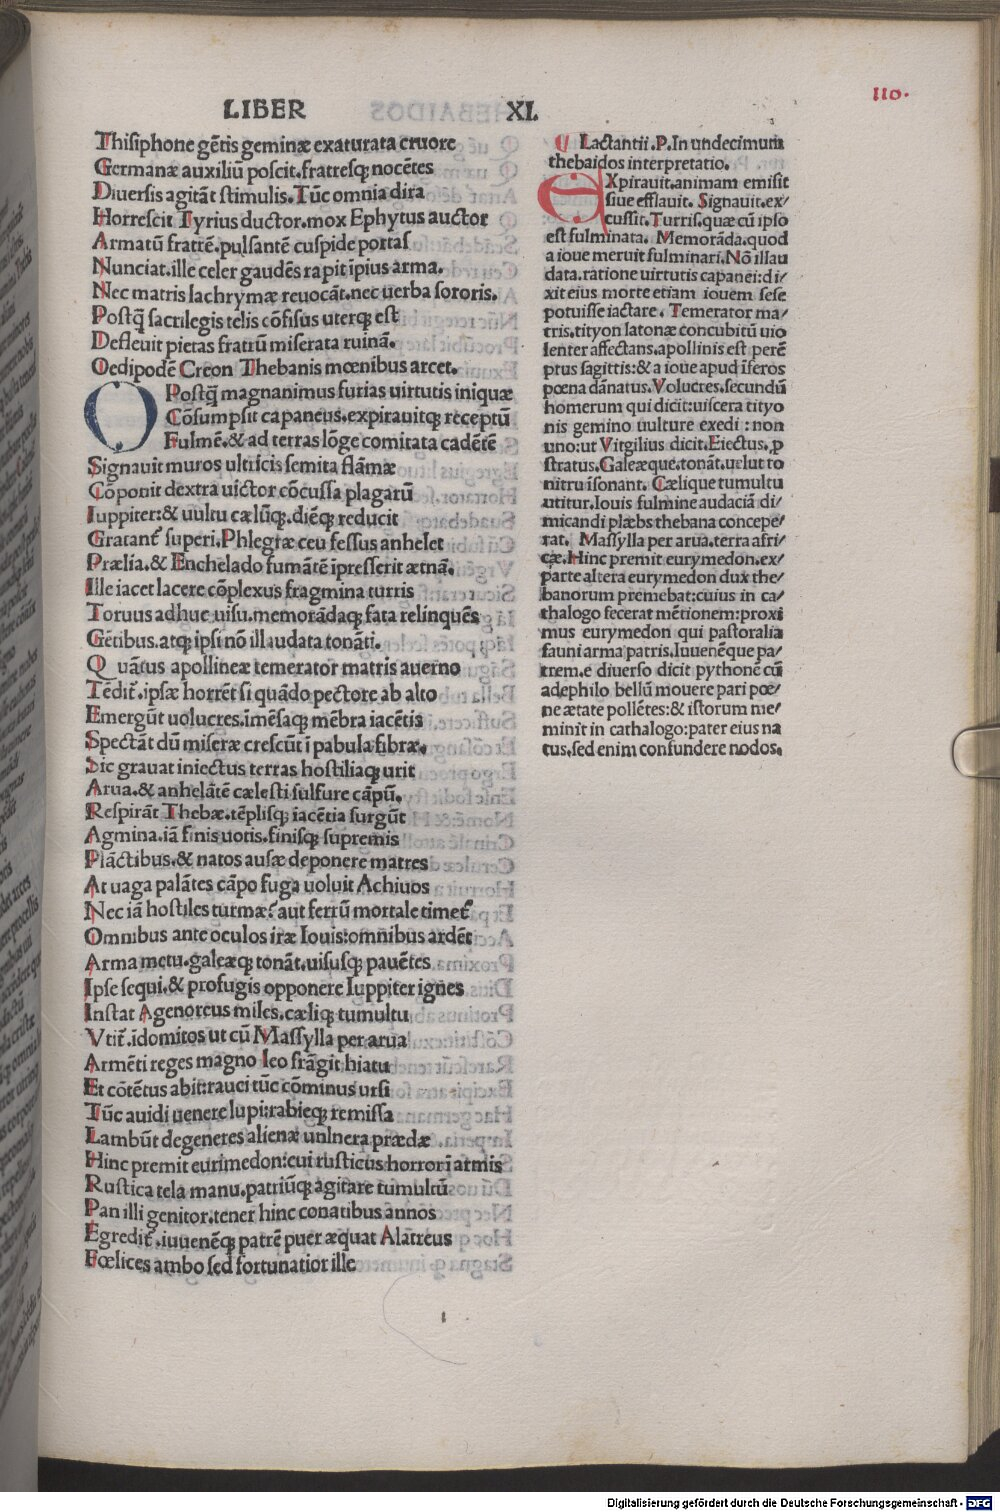 LIBER XI.
110.
Thisiphone gētis geminæ exaturata cruore
Germanæ auxiliū poscit.fratresq; nocētes
Diuersis agitāt stimulis.Tūc omnia dira
Horrescit Tyrius ductor.mox Ephytus auctor
Armatū fratrē.pulsantē cuspide portas
Nunciat.ille celer gaudēs rapit ipius arma.
Nec matris lachrymæ reuocāt.nec uerba sororis.
Postq̄ sacrilegis telis cōfisus uterq; est
Defleuit pietas fratrū miserata ruinā.
Oedipodē Creon Thebanis mœnibus arcet.
O Postq̄ magnanimus furias uirtutis iniquæ
Cōsumpsit capaneus.expirauitq; receptū
Fulmē.& ad terras lōge comitata cadētē
Signauit muros ultricis semita flāmæ
Cōponit dextra uictor cōcussa plagarū
Iuppiter:& uultu cælūq;.diēq; reducit
Gratant᷑ superi.Phlegræ ceu fessus anhelet
Prælia.& Enchelado fumātē ipresserit ætnā.
Ille iacet lacere cōplexus fragmina turris
Toruus adhuc uisu.memorādaq; fata relinquēs
Gētibus.atq; ipsi nō illaudata tonāti.
Q uātus apollineæ temerator matris auerno
Tēdit᷑.ipsæ horrēt si quādo pectore ab alto
Emergūt uolucres.imēsaq; mēbra iacētis
Spectāt dū miseræ crescūt i pabula fibræ.
Sic grauat iniectus terras hostiliaq; urit
Arua.& anhelātē cælesti sulfure cāpū.
Respirāt Thebæ.tēplisq; iacētia surgūt
Agmina.iā finis uotis.finisq; supremis
Plāctibus.& natos ausæ deponere matres
At uaga palātes cāpo fuga uoluit Achiuos
Nec iā hostiles turmæ? aut ferrū mortale timet᷑
Omnibus ante oculos iræ Iouis:omnibus ardēt
Arma metu.galeæq; tonāt.uisusq; pauētes
Ipse sequi.& profugis opponere Iuppiter ignes
Instat Agenoreus miles.cæliq; tumultu
Vtit᷑.idomitos ut cū Massylla per arua
Armēti reges magno leo frāgit hiatu
Et cōtētus abit:rauci tūc cōminus ursi
Tūc auidi uenere lupi:rabieq; remissa
Lambūt degeneres alienæ unlnera prædæ
Hinc premit eurimedon:cui rusticus horrorī armis
Rustica tela manu.patriūq; agitare tumultū
Pan illi genitor.tener hinc conatibus annos
Egredit᷑.iuuenēq; patrē puer æquat Alatreus
Fœlices ambo sed fortunatior ille
I
Lactantii.P.In undecimum
thebaidos interpretatio.
EXpirauit.animam emisit
siue efflauit. Signauit.ex/
cussit.Turris.quæ cū ipso
est fulminata. Memorāda.quod
a ioue meruit fulminari.Nō illau
data.ratione uirtutis capanei:di/
xit eius morte etiam iouem sese
potuisse iactare. Temerator ma/
tris.tityon latonæ concubitū uio
lenter affectans.apollinis est perē
ptus sagittis:& a ioue apud iferos
pœna dānatus.Volucres.secundū
homerum qui dicit:uiscera tityo
nis gemino uulture exedi : non
uno:ut Vitgilius dicit.Eiectus.p̱
stratus.Galeæque.tonāt.uelut to
nitru isonant. Cælique tumultu
utitur.Iouis fulmine audaciā di/
micandi plæbs thebana concepe/
rat. Massylla per arua.terra afri/
cæ.Hinc premit eurymedon.ex/
parte altera eurymedon dux the/
banorum premebat:cuius in ca/
thalogo fecerat mētionem:proxi
mus eurymedon qui pastoralia
fauni arma patris.Iuuenēque pa/
trem.e diuerso dicit pythonē cū
adephilo bellū mouere pari pœ/
ne ætate pollētes:& istorum me/
minit in cathalogo:pater eius na
tus.sed enim confundere nodos.
Digitalisierung gefördert durch die Deutsche Forschungsgemeinschaft - DFG